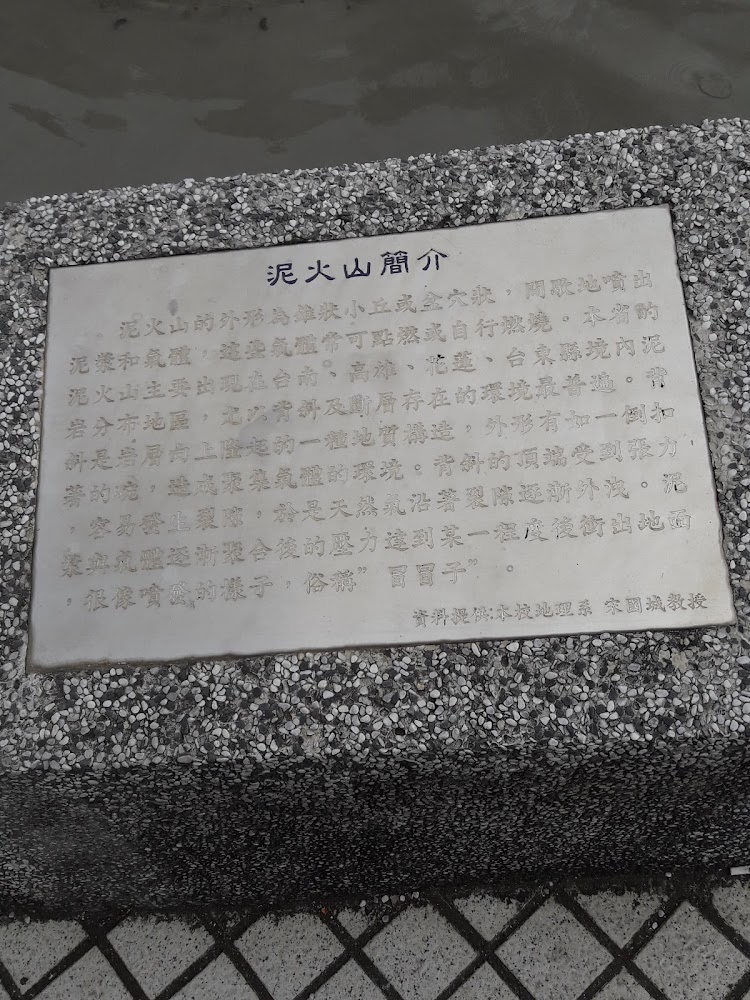 泥火山簡介
泥火山的外形為錐狀小丘或全穴狀，間歇地噴出
泥漿和氣體，這些氣體常可點燃或自行燃燒。本省的
泥火山主要出現在台南。高雄、花蓮、台東縣境內泥
岩分布地區，尤以背斜及斷層存在的環境最普遍。背
斜是岩層向上隆起的一種地質構造，外形有如一倒扣
著的碗，造成聚集氣體的環境。背斜的頂端受到張力
，容易發生裂隙，於是天然氣沿著裂隙逐漸外洩。泥
漿與氣體逐漸聚合後的壓力達到某一程度後衝出地面
，很像噴發的樣子，俗稱”冒冒子”。
資料提供:本校地理系 宋國城教授